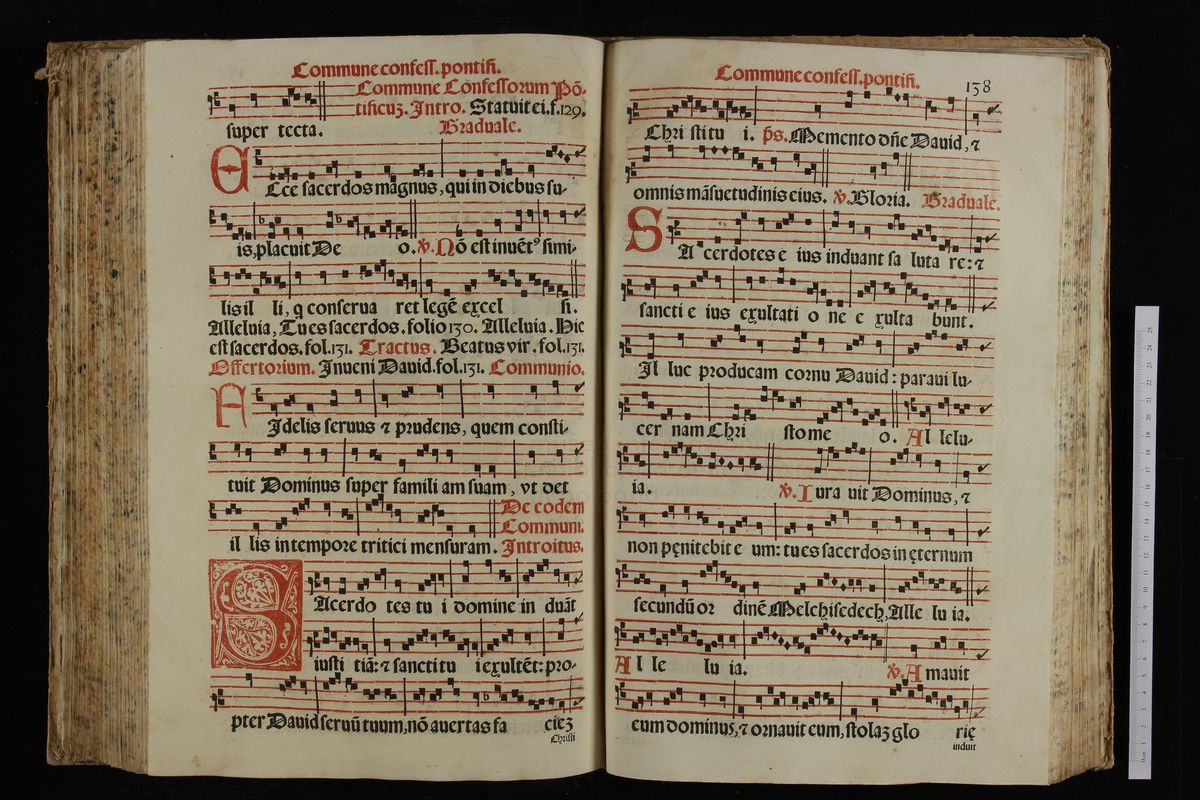 Commune confess. pontifi.
Commune Confessorum Põ-
tificuʒ. Intro. Statuit ei. f. 129.
super tecta. Graduale.
Ecce sacerdos magnus, qui in diebus su-
is, placuit De o. ℣. Nõ est inuẽtꝰ simi-
lis il li, q conserua ret legẽ excel si.
Alleluia, Tu es sacerdos. folio 130. Alleluia. Hic
est sacerdos. fol. 131. Tractus. Beatus vir. fol. 131.
Offertorium. Inueni Dauid. fol. 131. Communio.
FIdelis seruus ⁊ prudens, quem consti-
tuit Dominus super famili am suam, vt det
De eodem
Communi.
il lis in tempore tritici mensuram. Introitus.
SAcerdo tes tu i domine in duãt
iusti tiã: ⁊ sancti tu i exultẽt: pro-
pter Dauid seruũ tuum, nõ auertas fa cieʒ
Christi
Commune confess. pontifi.
138
Chri sti tu i. ps. Memento dñe Dauid, ⁊
omnis mãsuetudinis eius. ℣. Gloria. Graduale.
SA cerdotes e ius induant sa luta re: ⁊
sancti e ius exultati o ne e xulta bunt.
Il luc producam cornu Dauid: paraui lu-
cer nam Chri sto me o. Al lelu-
ia. ℣. Iura uit Dominus, ⁊
non pęnitebit e um: tu es sacerdos in ęternum
secundũ or dinẽ Melchisedech, Alle lu ia.
Al le lu ia. ℣. Amauit
eum dominus, ⁊ ornauit eum, stolaʒ glo rię
induit